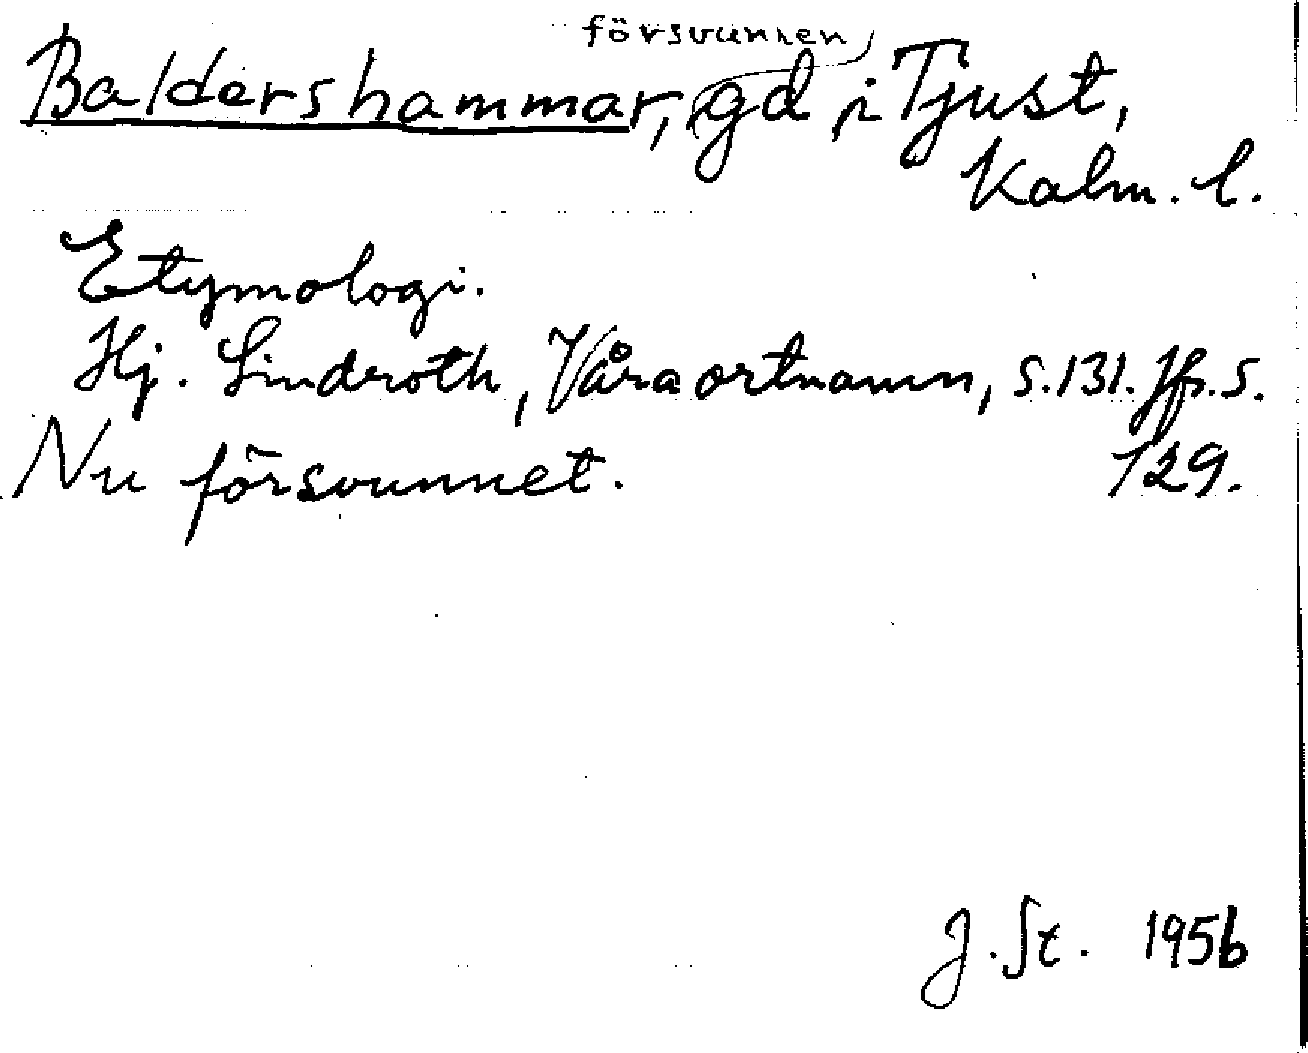 försvunnen
Baldershammar, gd i Tjust,
Kalm. l.
Etymologi.
Hj. Lindroth, Våra ortnamn, s. 131. Jfr. s.
129.
Nu försvunnet.
J. St. 1956